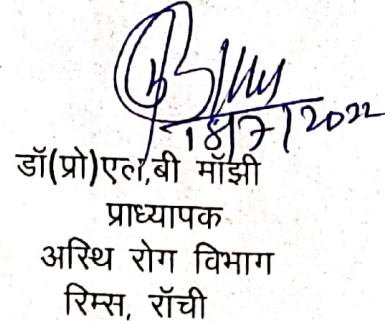 18/7/2022
डॉ(प्रो)एल,बी मॉझी
प्राध्यापक
अस्थि रोग विभाग
रिम्स, रॉची